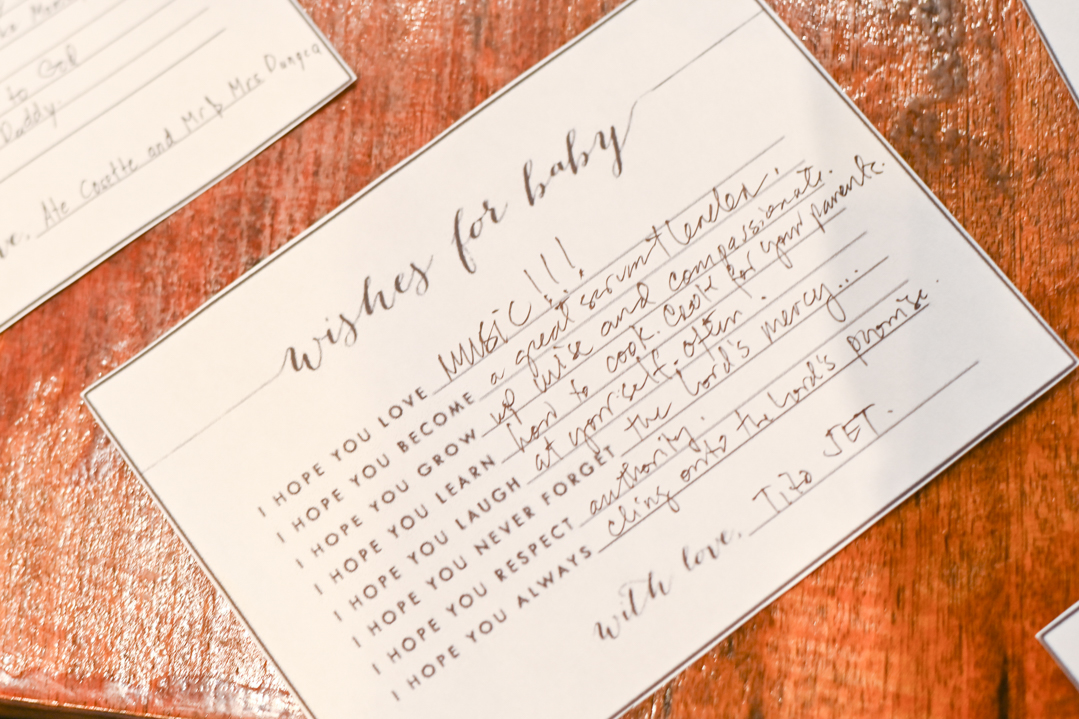 to God
Daddy.
Ate Cosette and Mr & Mrs Dungca
wishes for baby
I HOPE YOU LOVE MUSIC!!!
I HOPE YOU BECOME a great servant leader.
I HOPE YOU GROW up wise and compassionate.
I HOPE YOU LEARN how to cook. Cook for your parents.
I HOPE YOU LAUGH at yourself, often.
I HOPE YOU NEVER FORGET the Lord's mercy...
I HOPE YOU RESPECT authority.
I HOPE YOU ALWAYS cling onto the Lord's promise.
with love, Tito JET.